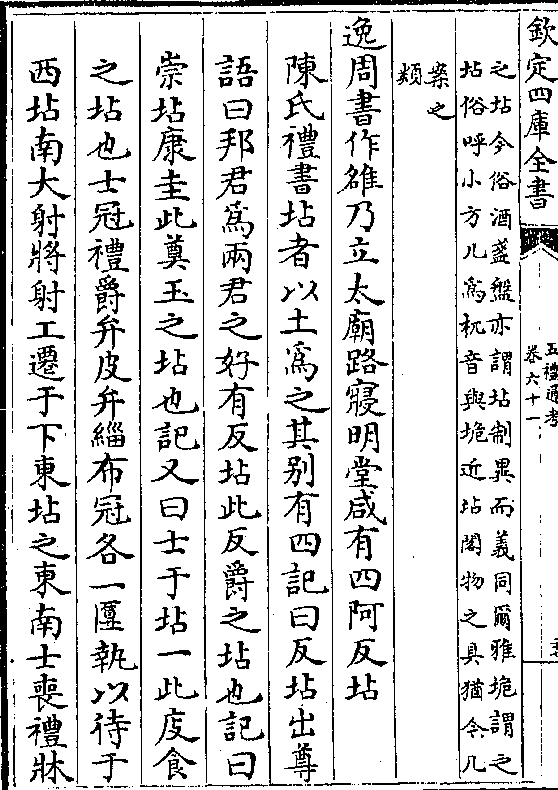 欽定四庫全書
五禮通考
卷六十一
之坫今俗酒盞盤亦謂坫制異而義同爾雅垝謂之
坫俗呼小方几爲杌音與垝近坫閣物之具猶今几
案之
類
逸周書作雒乃立太廟路寢明堂咸有四阿反坫
陳氏禮書坫者以土爲之其别有四記曰反坫出尊
語曰邦君爲兩君之好有反坫此反爵之坫也記曰
崇坫康圭此奠玉之坫也記又曰士于坫一此庋食
之坫也士冠禮爵弁皮弁緇布冠各一匴執以待于
西坫南大射將射工遷于下東坫之東南士喪禮牀